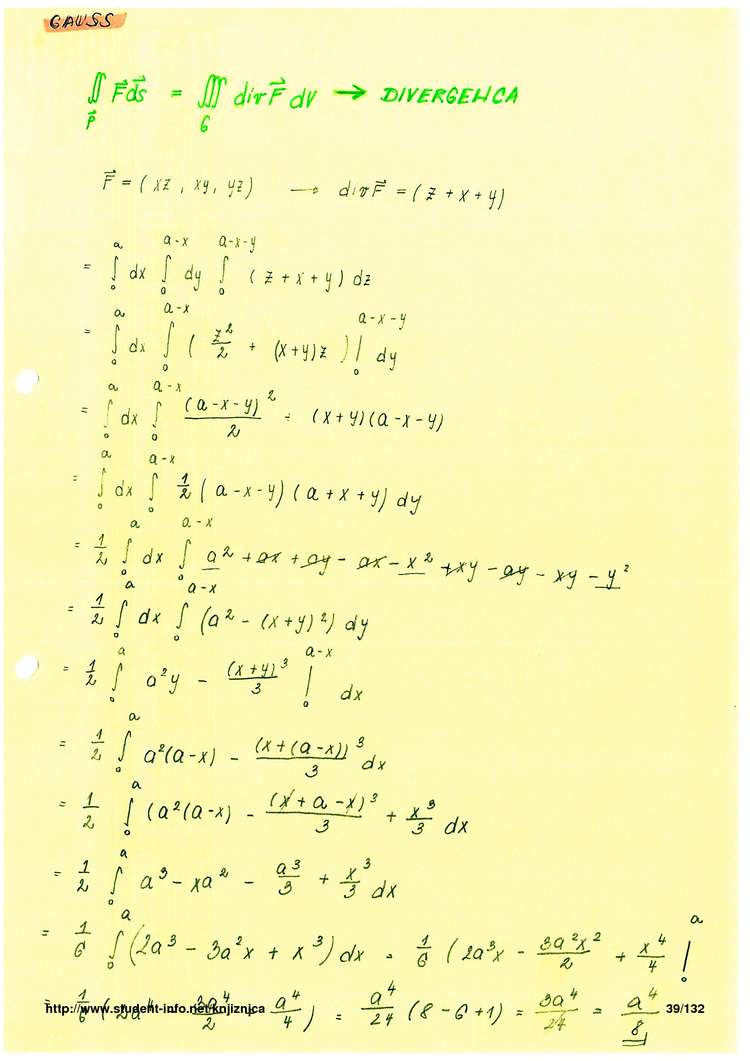 GAUSS
∬_P⃗ F⃗ ds⃗ = ∭_G div F⃗ dV → DIVERGENCA
F⃗ = (xz, xy, yz) → div F⃗ = (z + x + y)
= ∫₀^a dx ∫₀^(a-x) dy ∫₀^(a-x-y) (z + x + y) dz
= ∫₀^a dx ∫₀^(a-x) ( z²/2 + (x+y)z ) |₀^(a-x-y) dy
= ∫₀^a dx ∫₀^(a-x) (a-x-y)²/2 + (x+y)(a-x-y)
= ∫₀^a dx ∫₀^(a-x) 1/2 (a-x-y)(a+x+y) dy
= 1/2 ∫₀^a dx ∫₀^(a-x) a² + ax + ay - ax - x² + xy - ay - xy - y²
= 1/2 ∫₀^a dx ∫₀^(a-x) (a² - (x+y)²) dy
= 1/2 ∫₀^a a²y - (x+y)³/3 |₀^(a-x) dx
= 1/2 ∫₀^a a²(a-x) - (x+(a-x))³/3 dx
= 1/2 ∫₀^a (a²(a-x) - (x+a-x)³/3 + x³/3 dx
= 1/2 ∫₀^a a³ - xa² - a³/3 + x³/3 dx
= 1/6 ∫₀^a (2a³ - 3a²x + x³) dx = 1/6 (2a³x - 3a²x²/2 + x⁴/4 |₀^a
= 1/6 (2a⁴ - 3a⁴/2 a⁴/4) = a⁴/24 (8 - 6 + 1) = 3a⁴/24 = a⁴/8
http://www.student-info.net/knjiznica 39/132